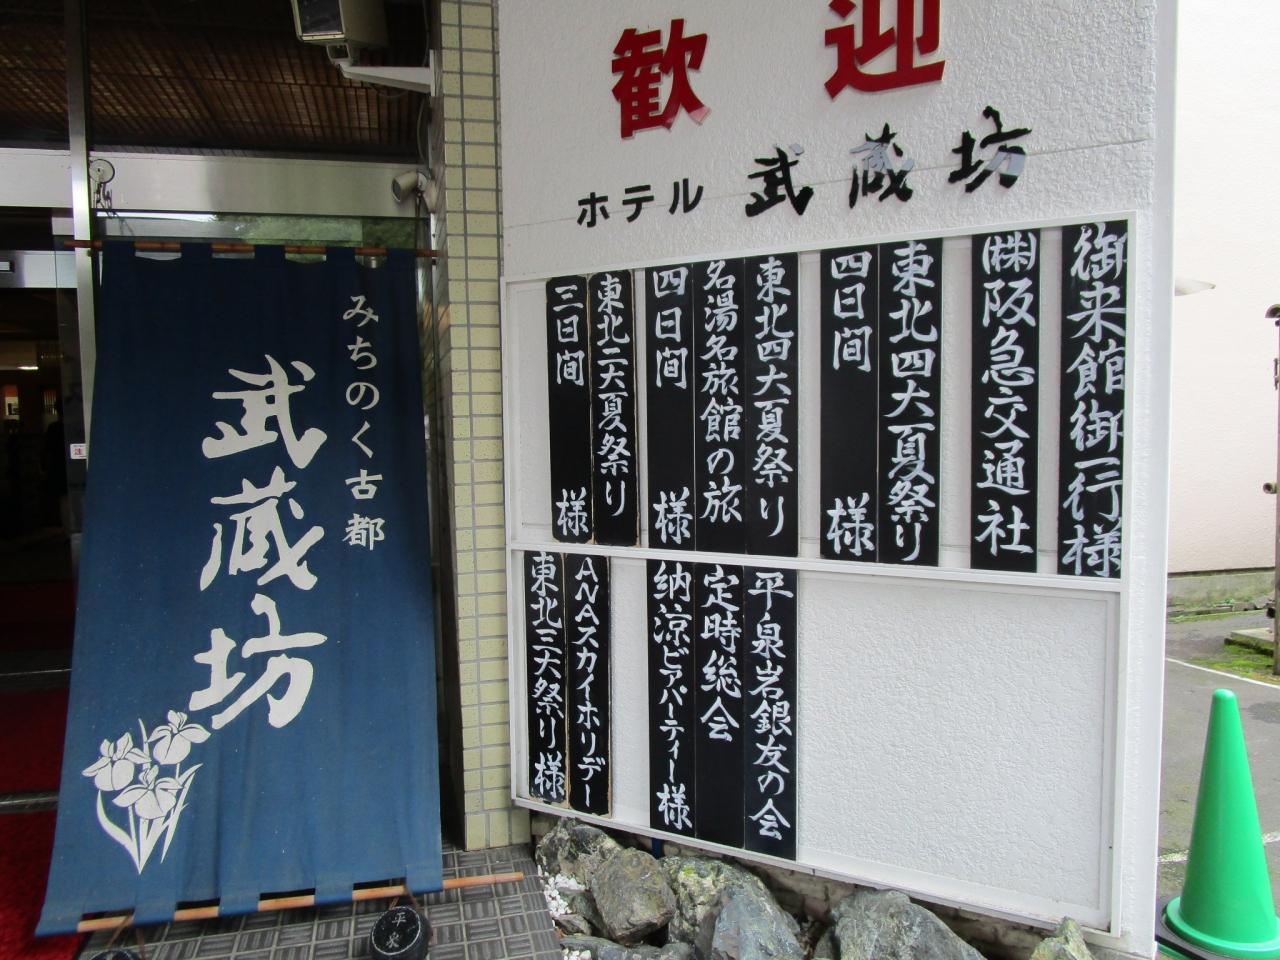 歓迎
ホテル 武蔵坊
御来館御一行様
㈱阪急交通社
東北四大夏祭り
四日間 様
東北四大夏祭り
名湯名旅館の旅
四日間 様
東北二大夏祭り
三日間 様
平泉岩銀友の会
定時総会
納涼ビアパーティー様
ANAスカイホリデー
東北三大祭り様
みちのく古都
武蔵坊
平泉
注